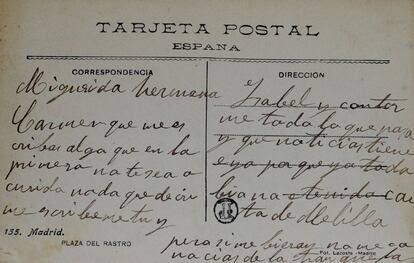 TARJETA POSTAL
ESPAÑA
CORRESPONDENCIA
Mi querida hermana
Carmen que me es
cribas algo que en la
primera no te sea o
currido nada que decir
me escribeme tu y
135. Madrid.
PLAZA DEL RASTRO
DIRECCION
Isabel y contar
me toda lo que pasa
y que noticias tiene
e yo por que yo toda
bia na o tenido car
ta de Melilla
pero si me bieras no me ca
nacias de la
Fot. Lacoste - Madrid